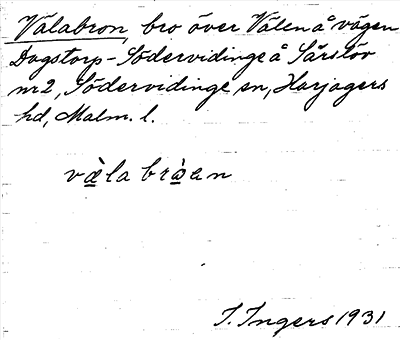 Välabron, bro över Välen å vägen
Dagstorp-Södervidinge å Särslöv
nr 2, Södervidinge sn, Harjagers
hd, Malm. l.
væ̀la brò̱en
I. Ingers 1931